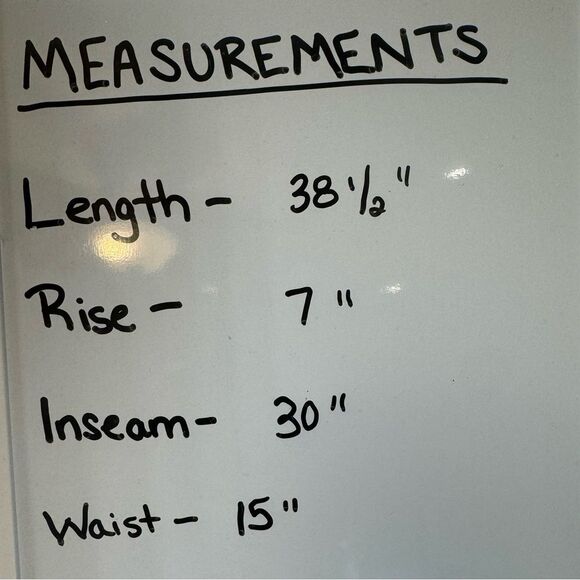 MEASUREMENTS
Length - 38 1/2"
Rise - 7"
Inseam - 30"
Waist - 15"